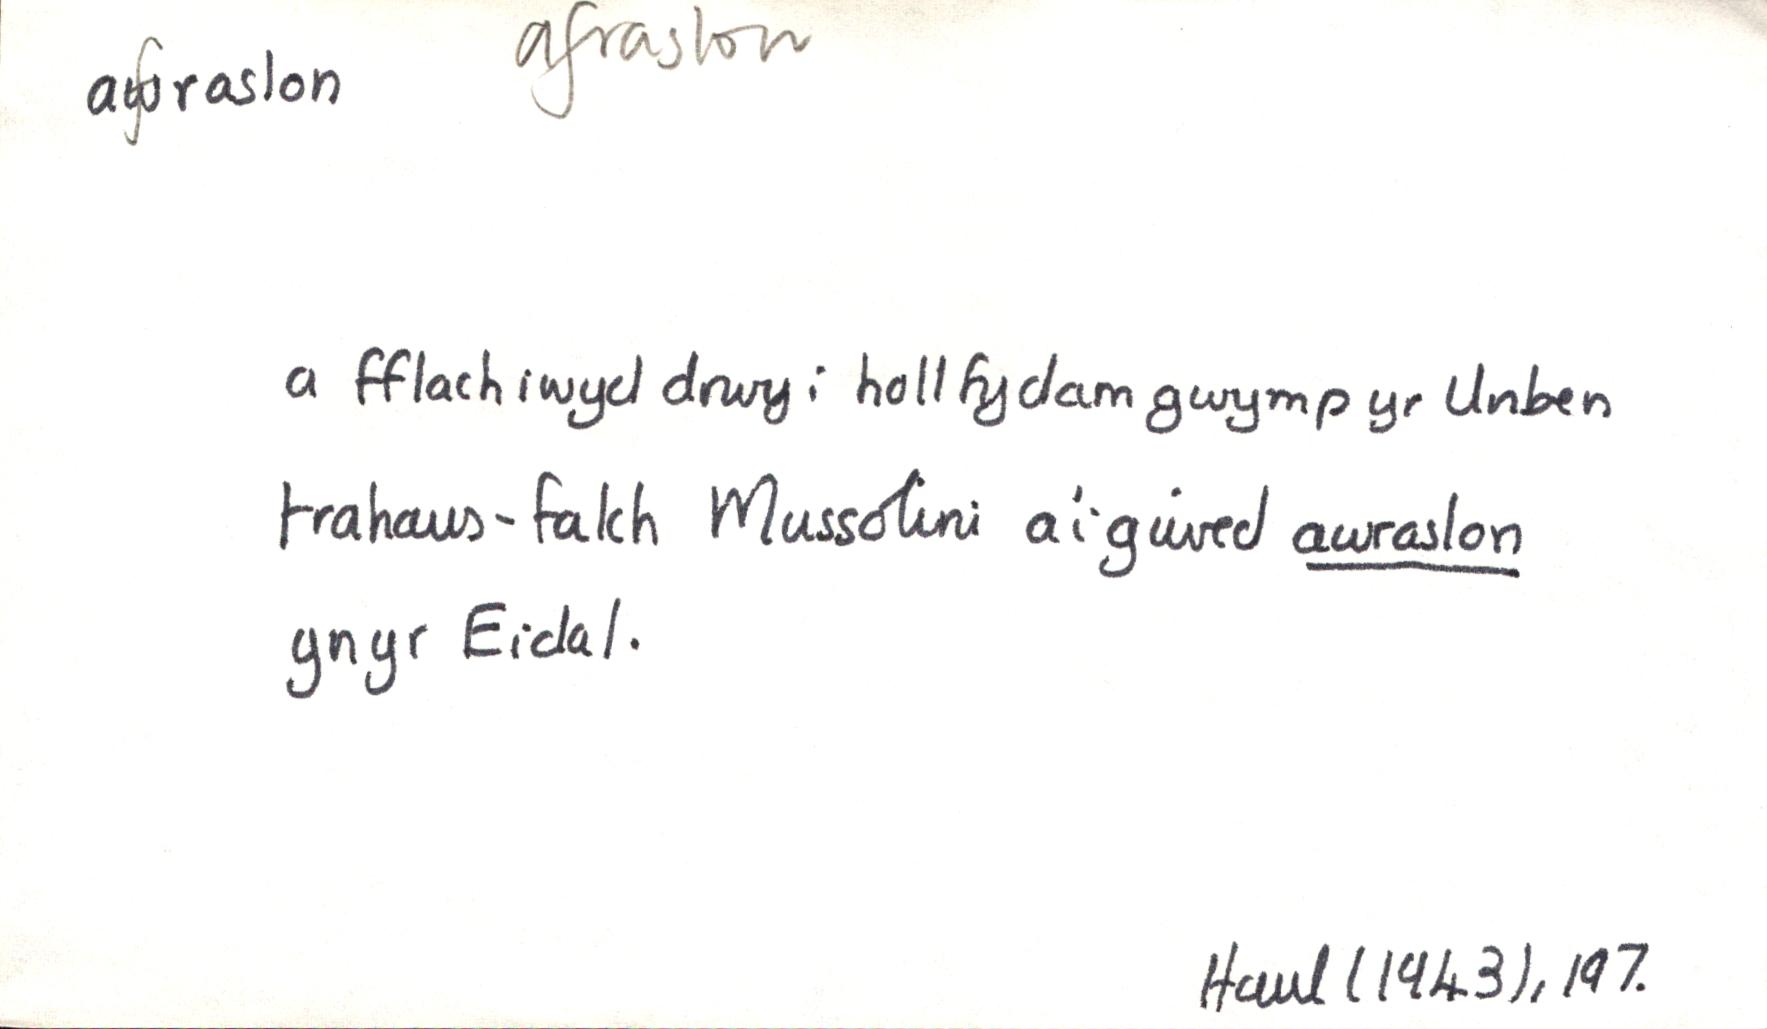 afraslon
awraslon
a fflachiwyd drwy i holl fyd am gwymp yr Unben
trahaus-falch Mussolini a'i giwed awraslon
yn yr Eidal.
Haul (1943), 197.